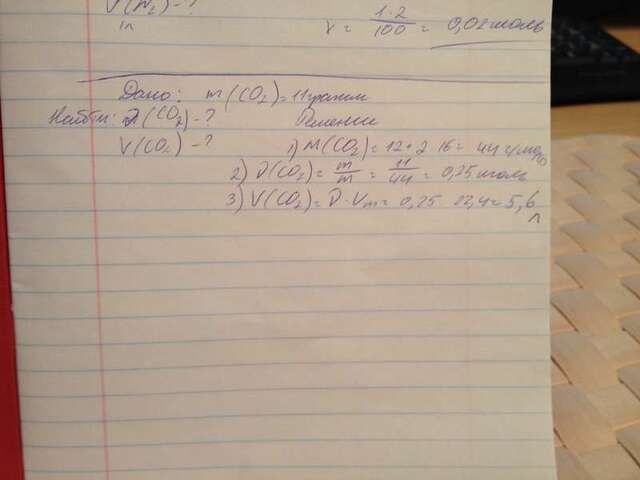 V(N₂) - ?
1л
ν = 1·2/100 = 0,02 моль
Дано: m(CO₂) = 11 грамм
Найти: ν(CO₂) - ? Решение
V(CO₂) - ? 1) M(CO₂) = 12 + 2 · 16 = 44 г/моль
2) ν(CO₂) = m/M = 11/44 = 0,25 моль
3) V(CO₂) = ν · Vm = 0,25 · 22,4 = 5,6 л